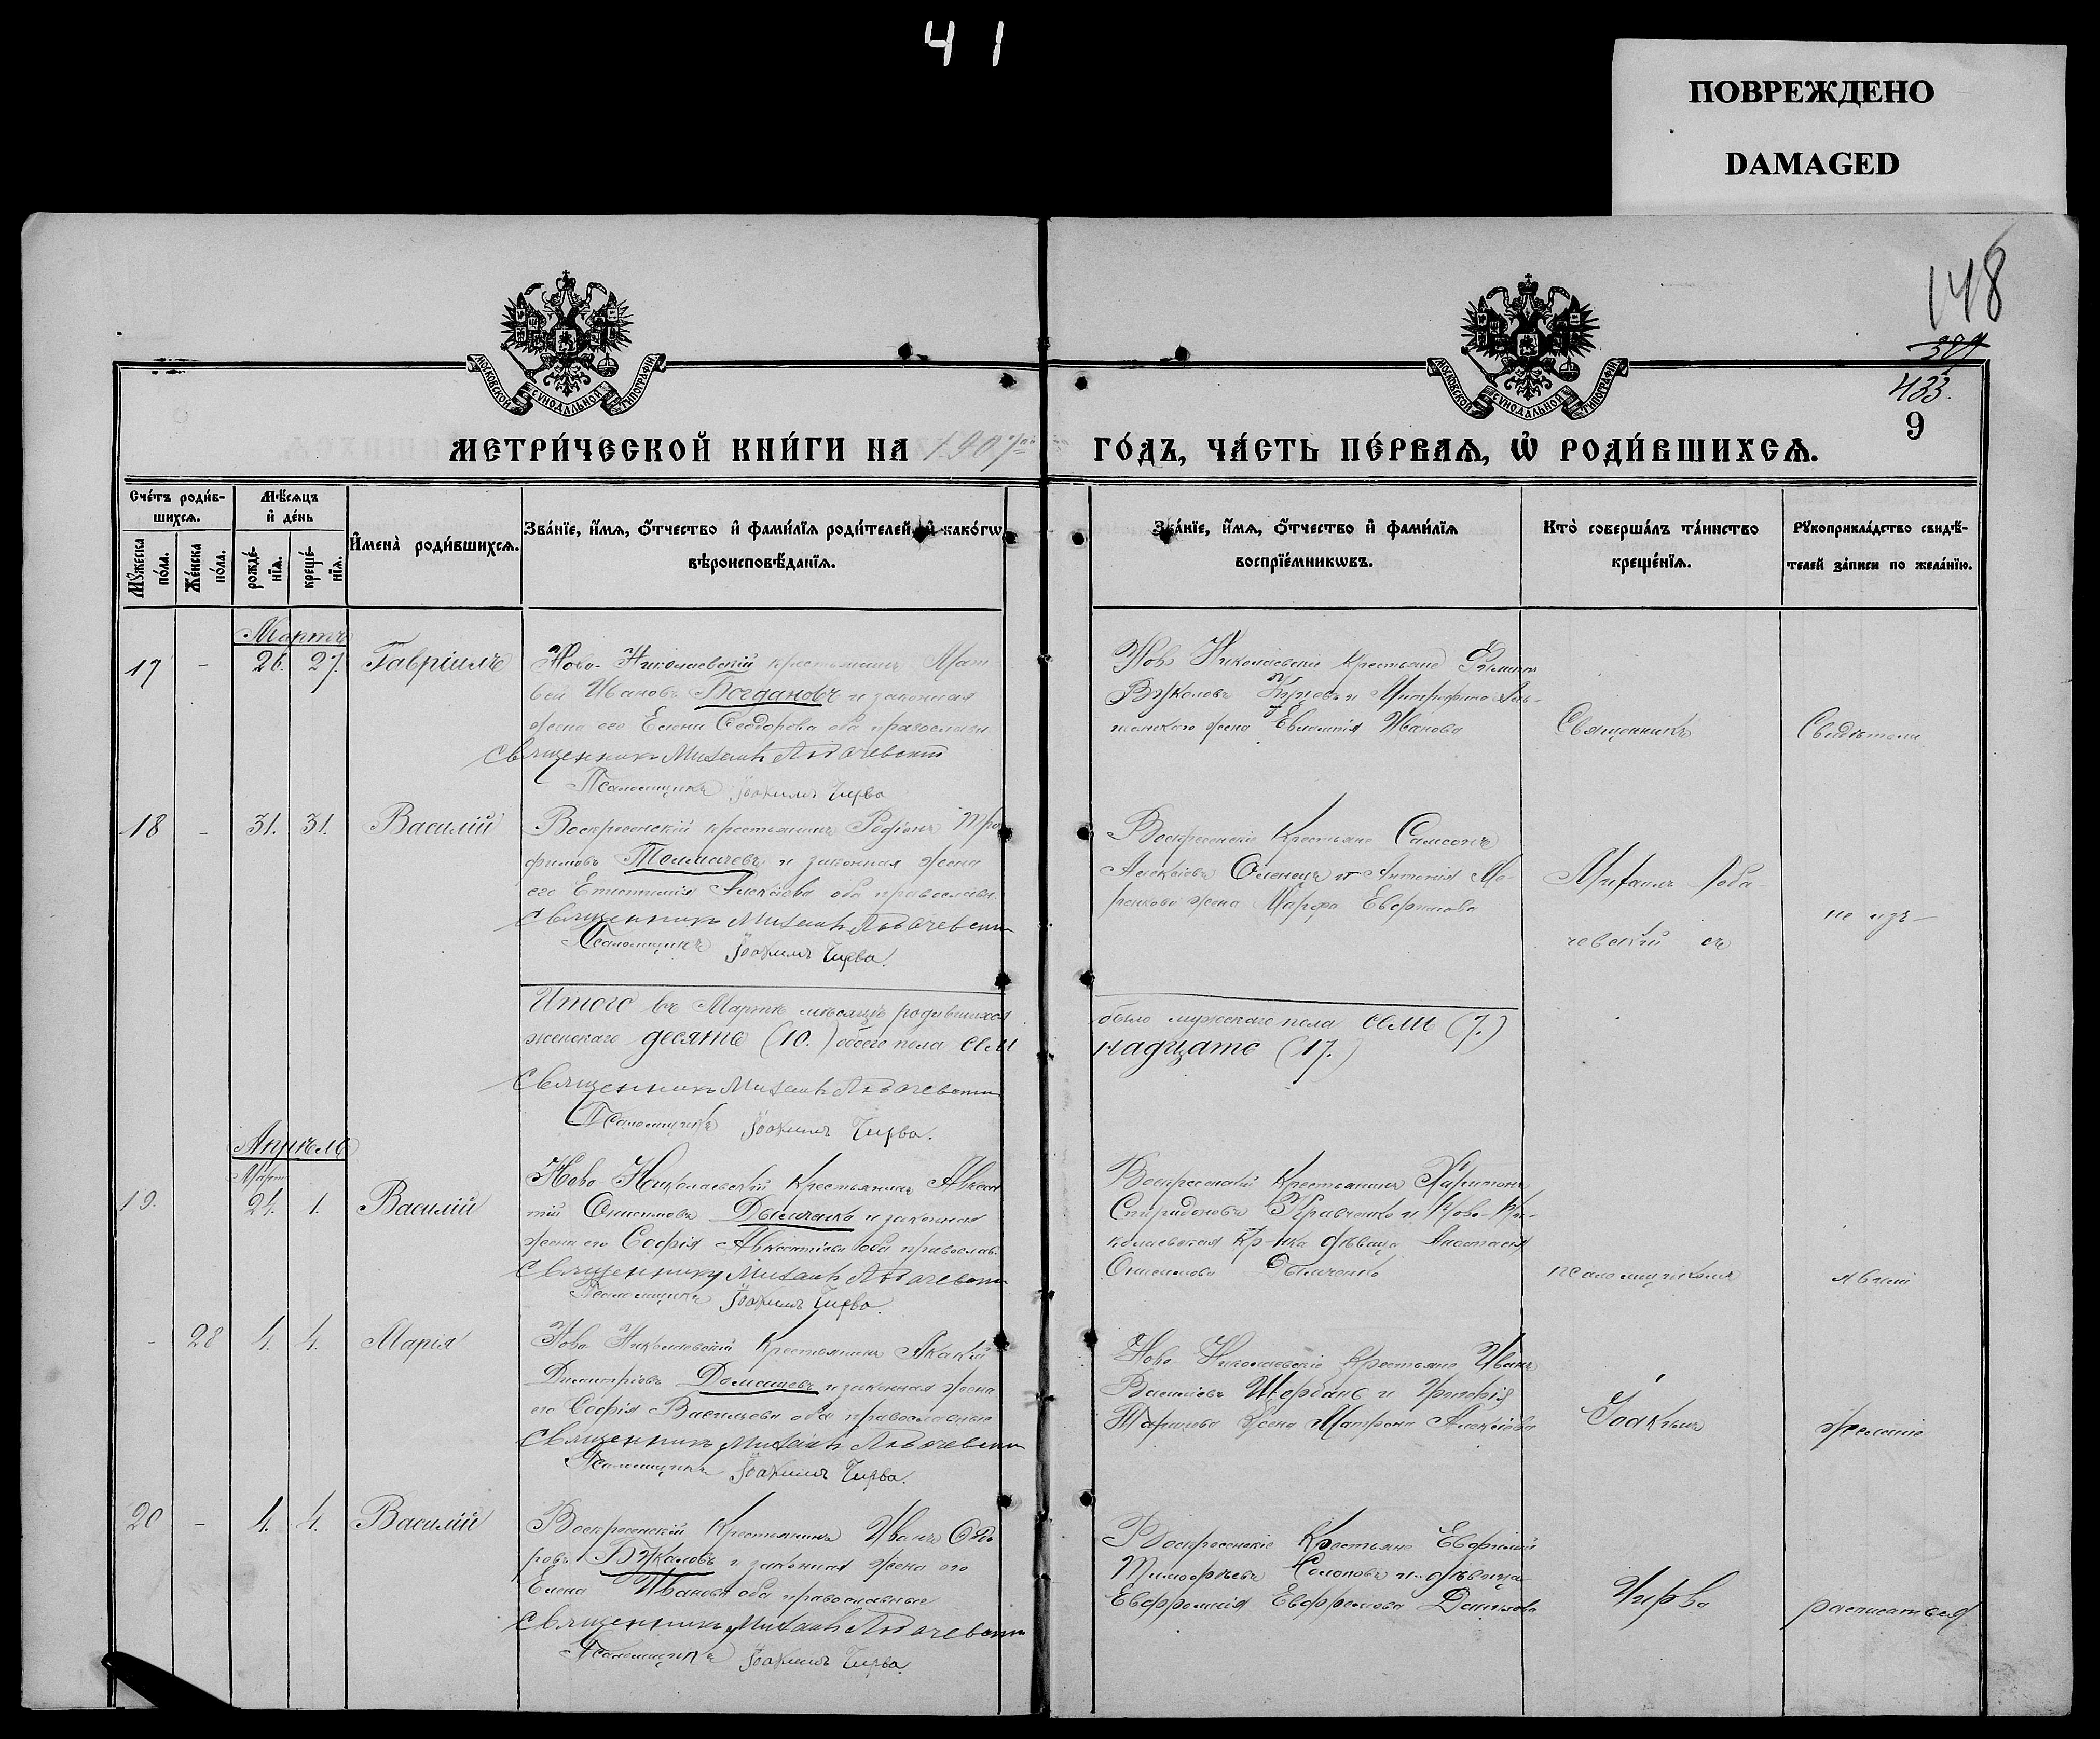 41
ПОВРЕЖДЕНО
DAMAGED
148
433.
9
МОСКОВСКОЙ СУНОДАЛЬНОЙ ТИПОГРАФІИ
МОСКОВСКОЙ СУНОДАЛЬНОЙ ТИПОГРАФІИ
МЕТРИ́ЧЕСКОЙ КНИ́ГИ НА 1907
ГО́ДЪ, ЧА́СТЬ ПЕ́РВАѦ, Ѡ҆ РОДИ́ВШИХСѦ.
Сче́тъ роди́в-
шихсѧ.
Мѣ́сѧцъ
и҆ де́нь
Мꙋ́жеска по́ла.
Же́нска по́ла.
рожде́-нїѧ.
креще́-нїѧ.
И҆мена̀ роди́вшихсѧ.
Зва́нїе, и҆́мѧ, ѻ҆́тчество и҆ фами́лїѧ роди́телей, и҆ како́гѡ
вѣроисповѣ́данїѧ.
Зва́нїе, и҆́мѧ, ѻ҆́тчество и҆ фами́лїѧ
воспрїе́мникѡвъ.
Кто̀ соверша́лъ та́инство
креще́нїѧ.
Рꙋкоприкла́дство свидѣ́-
телей за́писи по жела́нїю.
Мартъ
17 - 26. 27. Гавріилъ
Ново-Николаевскій крестьянинъ Мат
вей Ивановъ Богдановъ и законная
жена его Елена Ѳеодорова оба православн.
Священникъ Михаилъ Лобачевскій
Псаломщикъ Іоакимъ Чирва
Ново Николаевскіе крестьяне
жена Евлампія Иванова
Священникъ
Свидѣтели
18 - 31. 31. Василій
Воскресенскій крестьянинъ Родіонъ Тро
фимовъ Толмачевъ и законная жена
его Епистимія Алексіева оба православн.
Священникъ Михаилъ Лобачевскій
Псаломщикъ Іоакимъ Чирва.
Воскресенскіе Крестьяне Самсонъ
Алексіевъ Олейникъ и Антонія Ма-
ренкова жена Марфа Евфимова
Михаилъ Лоба-
чевскій съ
не изъ-
Итого въ Мартѣ мѣсяцѣ родившихся
женскаго десять (10.) обоего пола сем
Священникъ Михаилъ Лобачевскій
Псаломщикъ Іоакимъ Чирва.
было мужескаго пола семь (7.)
надцать (17.)
Апрѣль
Март
19. 21. 1. Василій
Ново Николаевскій Крестьянинъ Авксен
тій Онисимовъ Дымченко и законная
жена его Софія Авксентіева оба православ.
Священникъ Михаилъ Лобачевскій
Псаломщикъ Іоакимъ Чирва.
Воскресенскій Крестьянинъ Харитонъ
Спиридоновъ Кравченко и Ново-Ни-
колаевская Кр-нка дѣвица Анастасія
Онисимова Дымченко
псаломщикомъ
явили
- 28 4. 4. Марія
Ново Николаевскій Крестьянинъ Акакій
Димитріевъ Домашевъ и законная жена
его Софія Васильева оба православные
Священникъ Михаилъ Лобачевскій
Псаломщикъ Іоакимъ Чирва.
Ново Николаевскіе Крестьяне Иванъ
Васильевъ Щербань и
жена Матрона Алексіева
Іоакимъ
желаніе
20 - 4. 4. Василій
Воскресенскій Крестьянинъ Иванъ Ѳедо
ровъ Бужаловъ и законная жена его
Елена Иванова оба православные
Священникъ Михаилъ Лобачевскій
Псаломщикъ Іоакимъ Чирва.
Воскресенскіе Крестьяне Евфимій
Тимофѣевъ и дѣвица
Евфросинія Евфремова Данилова
Чирва
расписаться